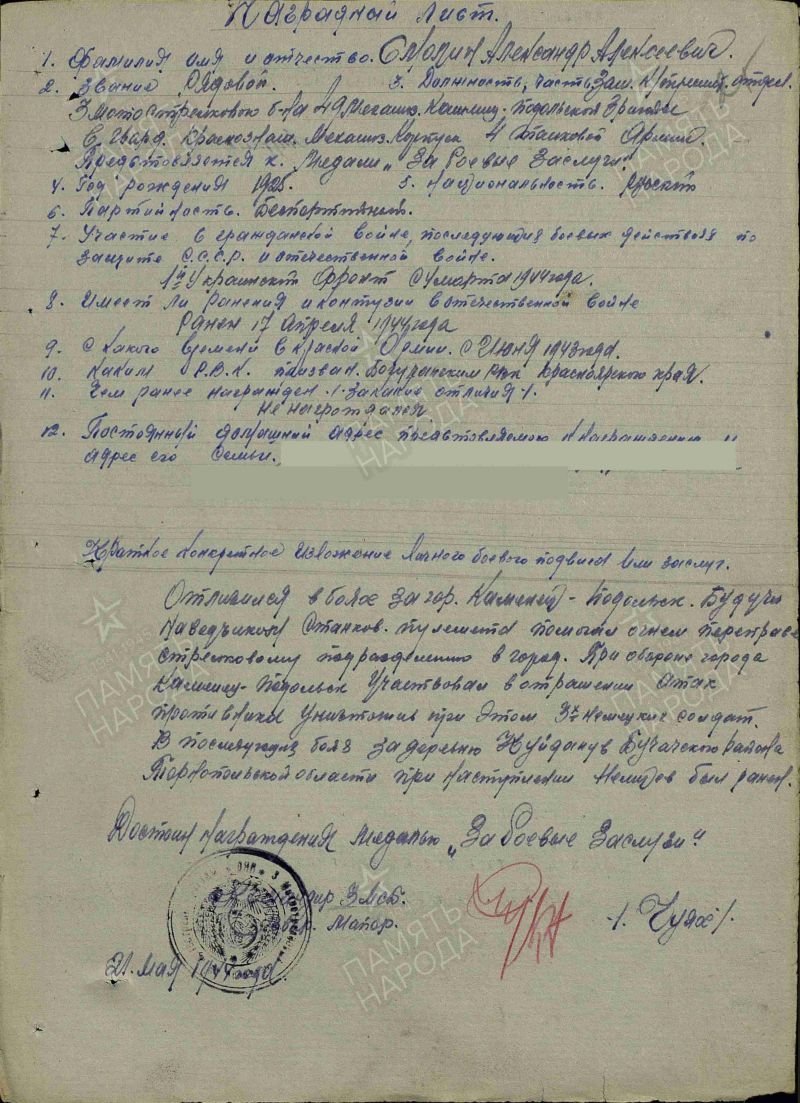 Наградный лист.
1. Фамилия имя и отчество. Смолин Александр Алексеевич.
2. Звание Рядовой. 3. Должность, часть Зам. К-ра отдел.
3 мотострелкового б-на 49 Механиз. Каменец-Подольской Бригады
6 Гвард. Краснознам. Механиз. Корпуса 4 танковой Армии.
Представляется к. Медали „За боевые Заслуги".
4. Год рождения 1925. 5. Национальность. Русский
6. Партийность. Беспартийный.
7. Участие в гражданской войне, последующих боевых действиях по
защите С.С.С.Р. и отечественной войне.
1й Украинский Фронт с 4 марта 1944 года.
8. Имеет ли ранения и контузии в отечественной войне
Ранен 17 Апреля 1944 года
9. С какого времени в красной Армии. с Июня 1943 года.
10. Каким Р.В.К. призван. Богучанским РВК Красноярского края.
11. Чем ранее награжден /за какие отличия/.
Не награждался
12. Постоянный домашний адрес представляемого к награждению и
адрес его семьи.
Краткое конкретное изложение личного боевого подвига или заслуг.
Отличился в боях за гор. Каменец-Подольск. Будучи
наводчиком Станков. пулемета помогал огнем переправе
стрелковому подразделению в город. При обороне города
Каменец-Подольск Участвовал в отражении Атак
противника уничтожив при этом 3х немецких солдат.
В последующих боях за деревню Нуйданув Бучачского района
Тарнопольской области при наступлении Немцев был ранен.
Достоин награждения медалью „За боевые Заслуги"
3 мсб.
Майор. /Чуях/.
21. мая 1944 года.
ПАМЯТЬ НАРОДА
ПАМЯТЬ НАРОДА
ПАМЯТЬ НАРОДА
ПАМЯТЬ НАРОДА
ПАМЯТЬ НАРОДА